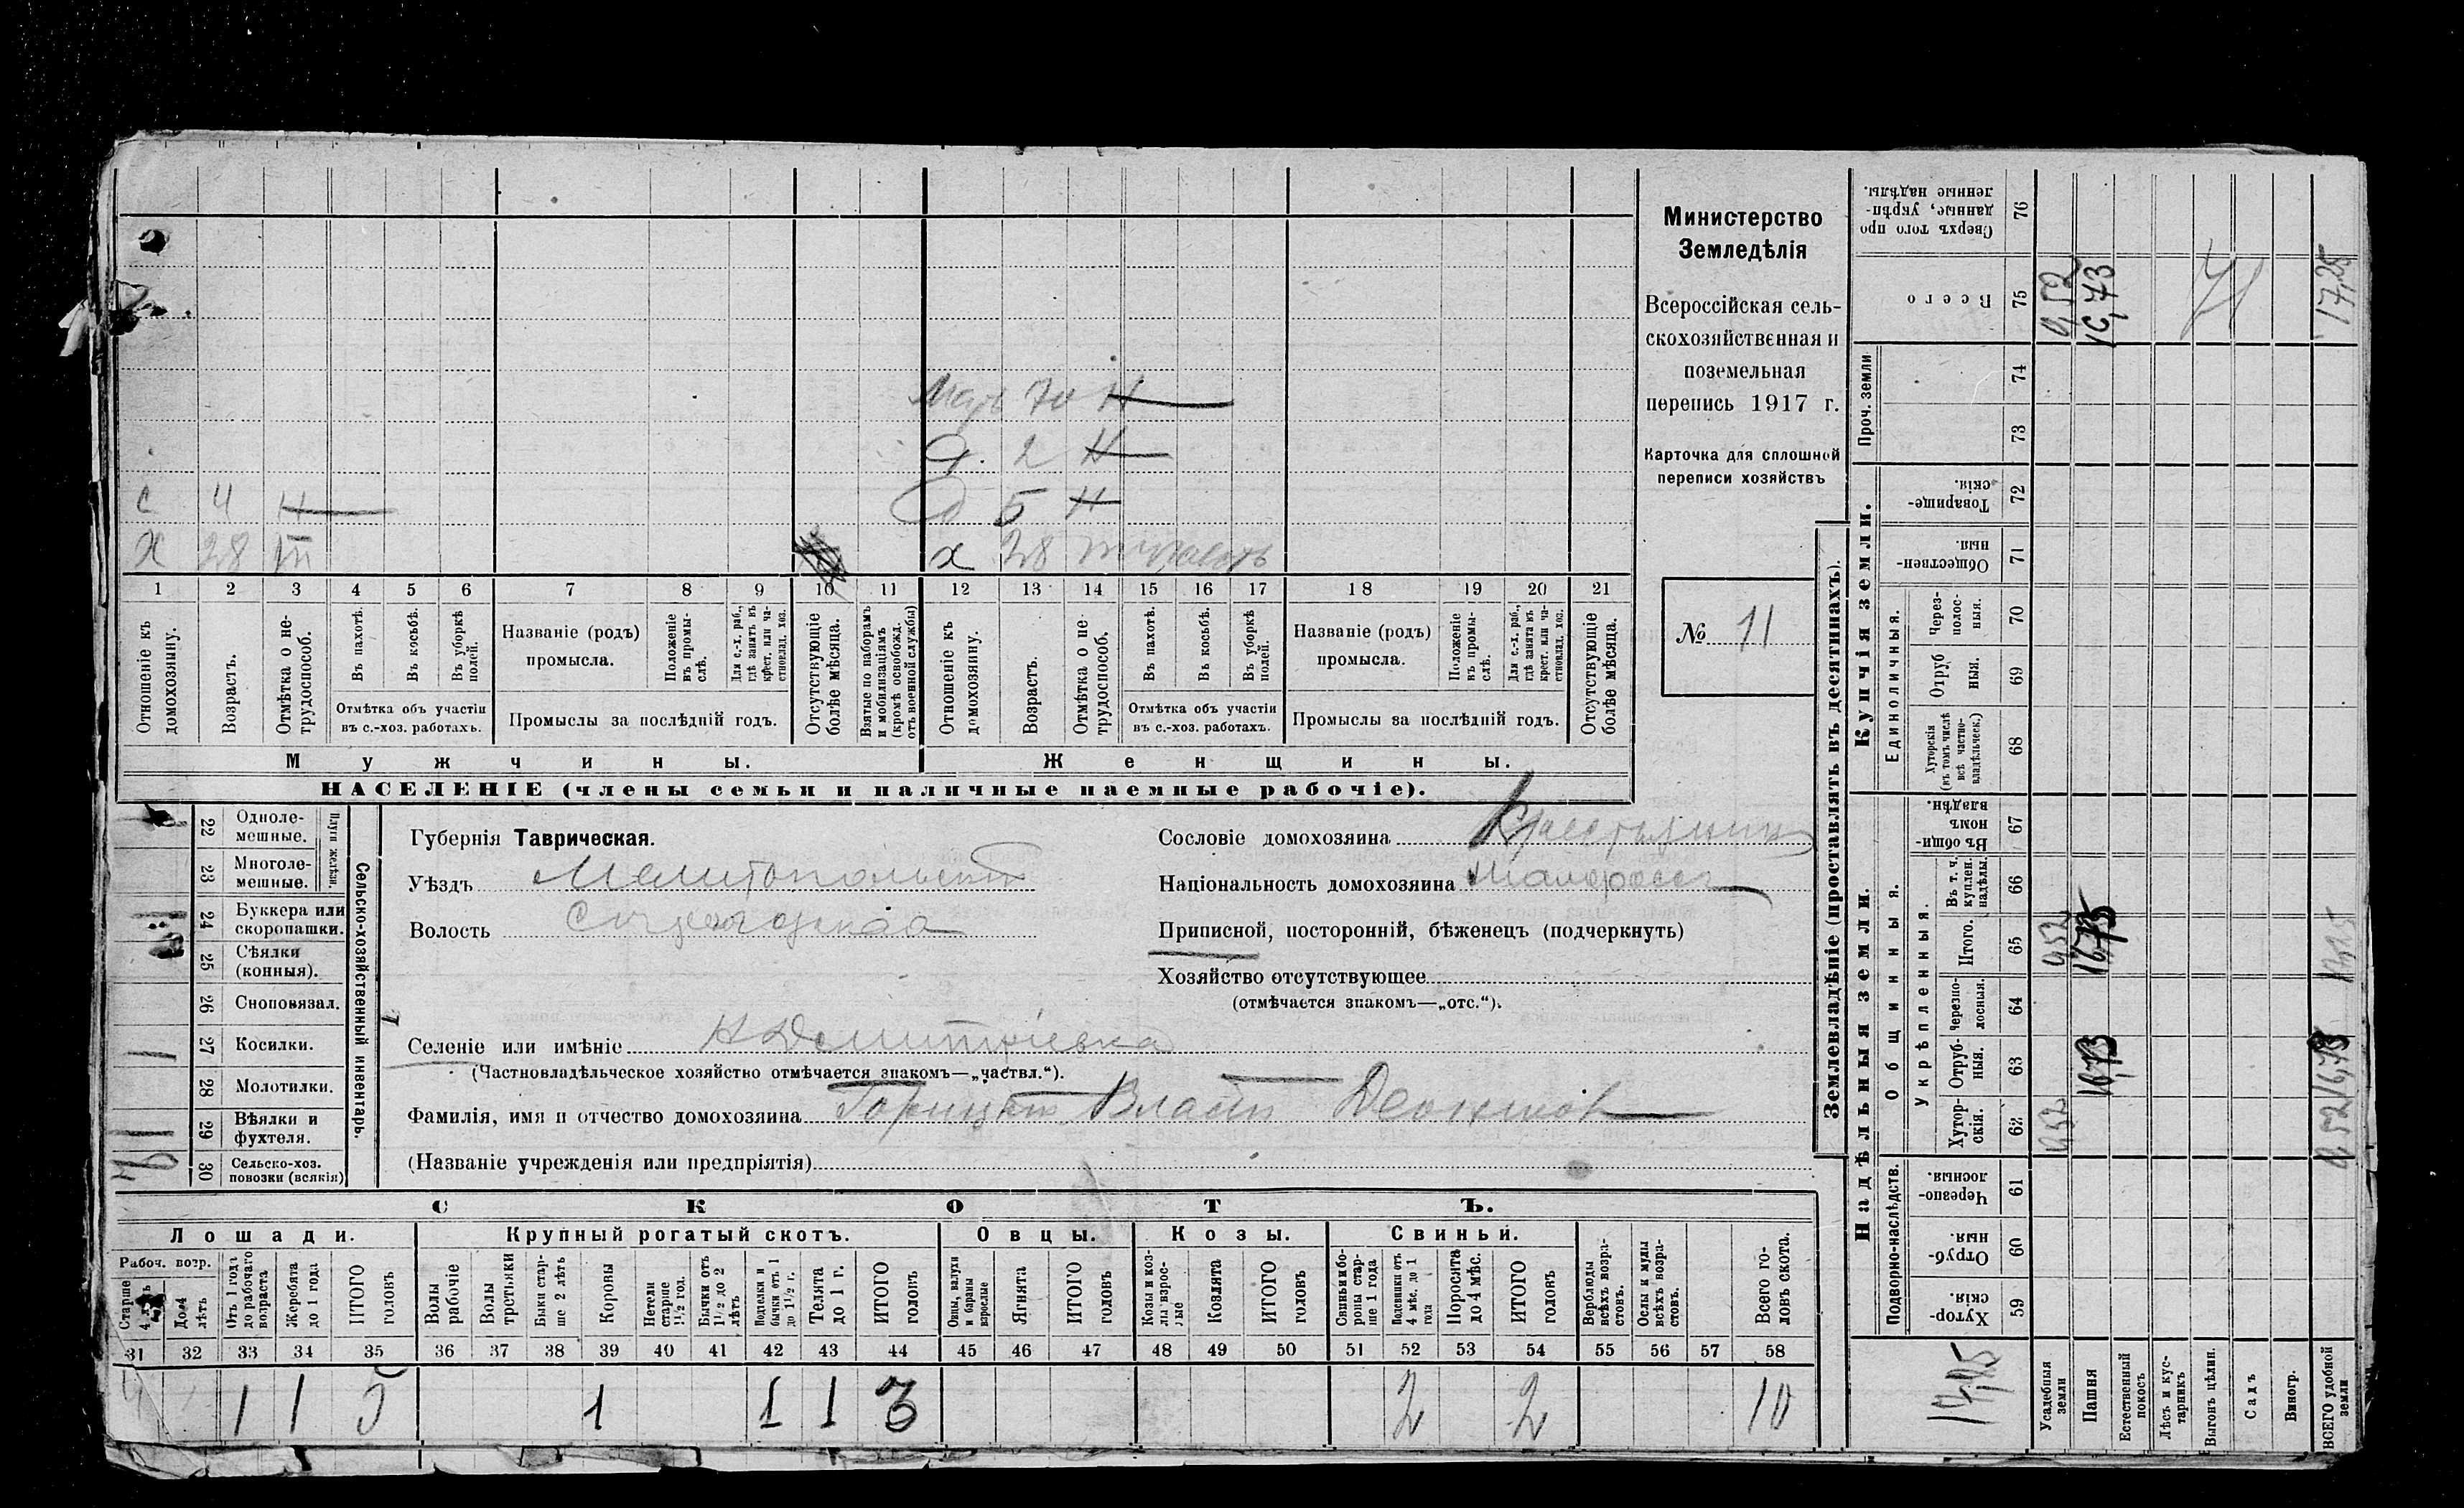 Мат 70 Н
Д. 2 Н
С 4 Н Д 5 Н
Х 28 Х 28
1 2 3 4 5 6 7 8 9 10 11 12 13 14 15 16 17 18 19 20 21
Отношеніе къ домохозяину.
Возрастъ.
Отмѣтка о не-
трудоспособ.
Въ пахотѣ.
Въ косьбѣ.
Въ уборкѣ полей.
Отмѣтка объ участіи
въ с.-хоз. работахъ.
Названіе (родъ)
промысла.
Положеніе въ промы-
слѣ.
Для с.-х. раб., гдѣ занятъ въ крест. или ча-
стновлад. хоз.
Промыслы за послѣдній годъ.
Отсутствующіе
болѣе мѣсяца.
Взятые по наборамъ
и мобилизаціямъ
(кромѣ освобожд.
отъ военной службы)
Отношеніе къ
домохозяину.
Возрастъ.
Отмѣтка о не-
трудоспособ.
Въ пахотѣ.
Въ косьбѣ.
Въ уборкѣ полей.
Отмѣтка объ участіи
въ с.-хоз. работахъ.
Названіе (родъ)
промысла.
Положеніе въ промы-
слѣ.
Для с.-х. раб., гдѣ занята въ крест. или ча-
стновлад. хоз.
Промыслы за послѣдній годъ.
Отсутствующіе
болѣе мѣсяца.
Мужчины. Женщины.
НАСЕЛЕНІЕ (члены семьи и наличные наемные рабочіе).
Министерство
Земледѣлія
Всероссійская сель-
скохозяйственная и
поземельная
перепись 1917 г.
Карточка для сплошной
переписи хозяйствъ
№ 11
22 Одноле-
мешные.
23 Многоле-
мешные.
Плуги желѣзн.
24 Буккера или
скоропашки.
25 Сѣялки
(конныя).
26 Сноповязал.
27 Косилки. 1
28 Молотилки.
29 Вѣялки и
фухтеля. 1
30 Сельско-хоз.
повозки (всякія)
Сельско-хозяйственный инвентарь.
Губернія Таврическая.
Уѣздъ Мелитопольскій
Волость
Сословіе домохозяина Крестьянинъ
Національность домохозяина Малороссъ
Приписной, посторонній, бѣженецъ (подчеркнуть)
Хозяйство отсутствующее
(отмѣчается знакомъ—„отс.“).
Селеніе или имѣніе Н Дмитріевка
(Частновладѣльческое хозяйство отмѣчается знакомъ—„частвл.“).
Фамилія, имя и отчество домохозяина Власъ
(Названіе учрежденія или предпріятія)
СКОТЪ.
Лошади. Крупный рогатый скотъ. Овцы. Козы. Свиньи.
Рабоч. возр.
Старше 4 лѣтъ
До 4 лѣтъ
Отъ 1 года до рабочаго возраста
Жеребята до 1 года
ИТОГО головъ
Волы рабочіе
Волы третьяки
Быки стар-
ше 2 лѣтъ
Коровы
Нетели старше 1½ год.
Бычки отъ 1½ до 2 лѣтъ
Подтелки и бычки отъ 1 до 1½ г.
Телята до 1 г.
ИТОГО головъ
Овцы, валухи и бараны взрослые
Ягнята
ИТОГО головъ
Козы и коз-
лы взрос-
лые
Козлята
ИТОГО головъ
Свиньи и бо-
ровы стар-
ше 1 года
Подсвинки отъ 4 мѣс. до 1 года
Поросята до 4 мѣс.
ИТОГО головъ
Верблюды всѣхъ возра-
стовъ.
Ослы и мулы всѣхъ возра-
стовъ.
Всего го-
ловъ скота.
31 32 33 34 35 36 37 38 39 40 41 42 43 44 45 46 47 48 49 50 51 52 53 54 55 56 57 58
1 1 5 1 1 1 3 2 2 10
Землевладѣніе (проставлять въ десятинахъ).
Надѣльныя земли. Купчія земли. Проч. земли
Подворно-наслѣдств.
Общинныя.
Укрѣпленныя.
Единоличныя.
Хутор-
скія. 59
Отруб-
ныя. 60
Черезпо-
лосныя. 61
Хутор-
скія. 62
Отруб-
ныя. 63
Черезпо-
лосныя. 64
Итого. 65
Въ т. ч. куплен. надѣлы. 66
Въ общи
номъ
владѣн. 67
Хуторскія
(въ томъ числѣ
всѣ частно-
владѣльческ.) 68
Отруб
ныя. 69
Через-
полос-
ныя. 70
Обществен-
ныя. 71
Товарище-
скія. 72
73
74
Всего 75
Сверхъ того про
данные, укрѣп-
ленные надѣлы. 76
Усадебныя земли 0,52 0,52 0,52
Пашня 16,73 16,73 16,73
Естественный покосъ
Лѣсъ и кус-
тарникъ
Выгонъ цѣлин.
Садъ
Виногр.
ВСЕГО удобной земли 0,52 16,73 17,25 17,25